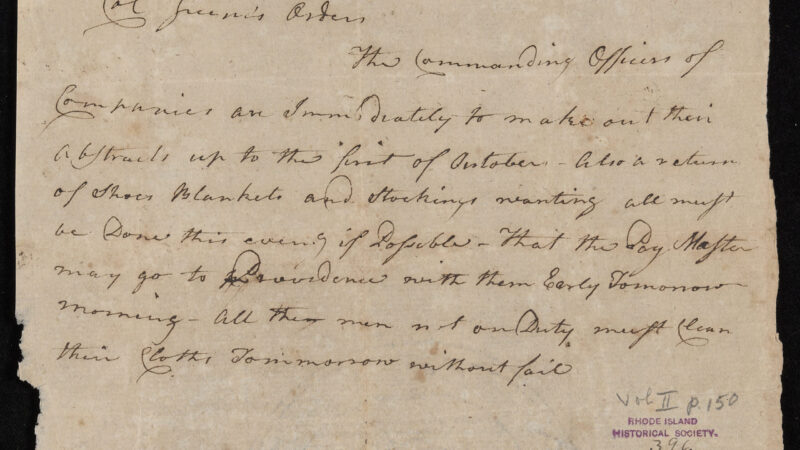 Col Green's Orders
The Commanding Officers of
Companies are Immidiately to make out their
Abstracts up to the first of October - Also a return
of Shoes Blankets and Stockings wanting all must
be Done this eveng if Possible - That the Pay Master
may go to Providence with them Early Tomorrow
morning - All the men not on Duty must Clean
their Cloths Tommorrow without fail
Vol II p. 150
RHODE ISLAND
HISTORICAL SOCIETY.
396